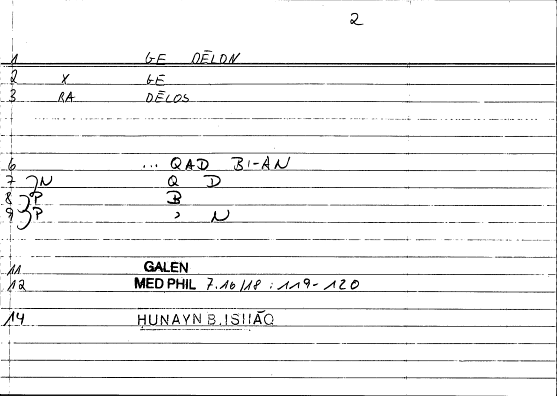 2
1 GE DĒLON
2 X GE
3 RA DĒLOS
6 ... QAD BI-AN
7 N Q D
8 P B
9 P , N
11 GALEN
12 MED PHIL 7.16/18 : 119-120
14 HUNAYN B.ISḤĀQ